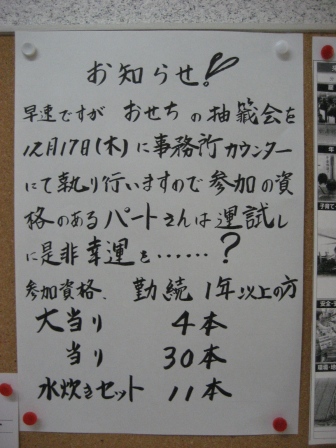 お知らせ!!
早速ですが おせちの抽籤会を
12月17日(木)に事務所カウンター
にて執り行いますので参加の資
格のあるパートさんは運試し
に是非幸運を……?
参加資格、 勤続 1年以上の方
大当り 4本
当り 30本
水炊きセット 11本